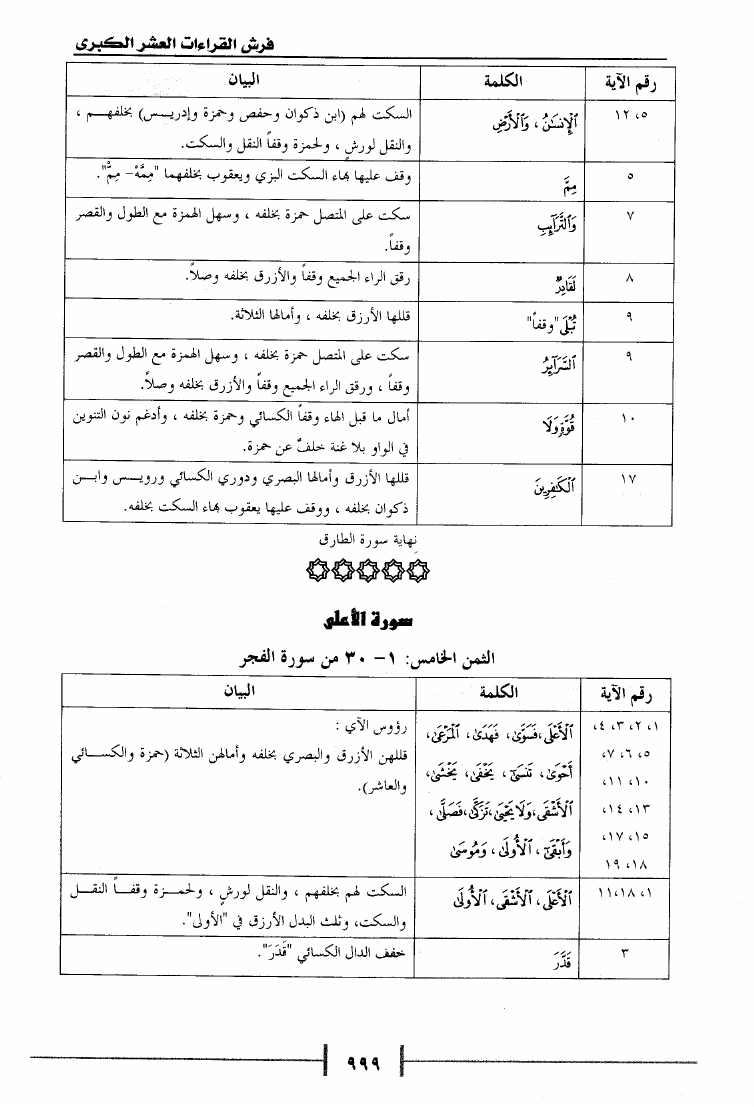 فرش القراءات العشر الكبرى
رقم الآية الكلمة البيان
٥، ١٢ ٱلْإِنسَٰنُ ، وَٱلْأَرْضِ السكت لهم (ابن ذكوان وحفص وحمزة وإدريــس) بخلفهــم ،
والنقل لورشٍ ، ولحمزة وقفاً النقل والسكت.
٥ مِمَّ وقف عليها بهاء السكت البزي ويعقوب بخلفهما "مِمَّهْ- مِمّْ".
٧ وَٱلتَّرَآئِبِ سكت على المتصل حمزة بخلفه ، وسهل الهمزة مع الطول والقصر
وقفاً.
٨ لَقَادِرٌ رقق الراء الجميع وقفاً والأزرق بخلفه وصلاً.
٩ تُبْلَى "وقفاً" قللها الأزرق بخلفه ، وأمالها الثلاثة.
٩ ٱلسَّرَآئِرُ سكت على المتصل حمزة بخلفه ، وسهل الهمزة مع الطول والقصر
وقفاً ، ورقق الراء الجميع وقفاً والأزرق بخلفه وصلاً.
١٠ قُوَّةٍ وَلَا أمال ما قبل الهاء وقفاً الكسائي وحمزة بخلفه ، وأدغم نون التنوين
في الواو بلا غنة خلفٌ عن حمزة.
١٧ ٱلْكَٰفِرِينَ قللها الأزرق وأمالها البصري ودوري الكسائي ورويــس وابــن
ذكوان بخلفه ، ووقف عليها يعقوب بهاء السكت بخلفه.
نهاية سورة الطارق
سورة الأعلى
الثمن الخامس: ١- ٣٠ من سورة الفجر
رقم الآية الكلمة البيان
١، ٢، ٣، ٤، ٱلْأَعْلَى، فَسَوَّىٰ، فَهَدَىٰ، ٱلْمَرْعَىٰ، رؤوس الآي :
٥، ٦، ٧، أَحْوَىٰ، تَنسَىٰٓ، يَخْفَىٰ، يَخْشَىٰ، قللهن الأزرق والبصري بخلفه وأمالهن الثلاثة (حمزة والكســائي
١٠، ١١، والعاشر).
١٣، ١٤، ٱلْأَشْقَى، وَلَا يَحْيَىٰ، تَزَكَّىٰ، فَصَلَّىٰ،
١٥، ١٧، وَأَبْقَىٰٓ، ٱلْأُولَىٰ، وَمُوسَىٰ
١٨، ١٩
١، ١٨، ١١ ٱلْأَعْلَى، ٱلْأَشْقَى، ٱلْأُولَىٰ السكت لهم بخلفهم ، والنقل لورشٍ ، ولحمــزة وقفــاً النقــل
والسكت، وثلث البدل الأزرق في "الأولى".
٣ قَدَّرَ خفف الدال الكسائي "قَدَرَ".
٩٩٩